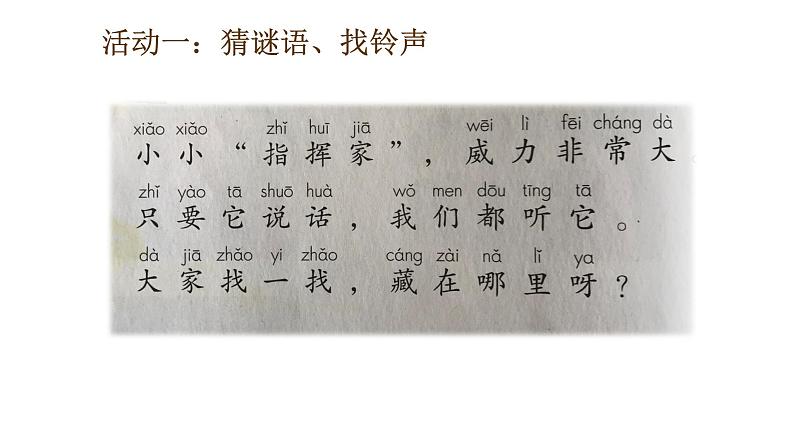 活动一：猜谜语、找铃声
xiǎo xiǎo zhǐ huī jiā wēi lì fēi cháng dà
小小“指挥家”，威力非常大。
zhǐ yào tā shuō huà wǒ men dōu tīng tā
只要它说话，我们都听它。
dà jiā zhǎo yi zhǎo cáng zài nǎ lǐ ya
大家找一找，藏在哪里呀？